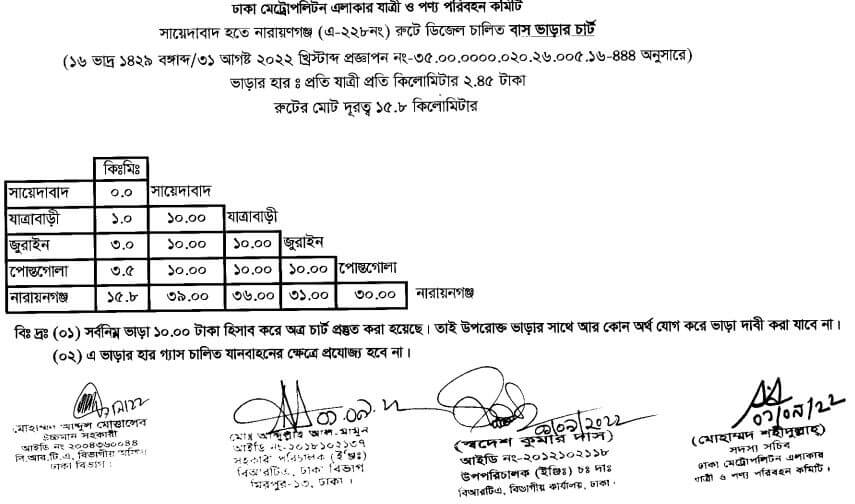 ঢাকা মেট্রোপলিটন এলাকার যাত্রী ও পণ্য পরিবহন কমিটি
সায়েদাবাদ হতে নারায়ণগঞ্জ (এ-২২৮নং) রুটে ডিজেল চালিত বাস ভাড়ার চার্ট
(১৬ ভাদ্র ১৪২৯ বঙ্গাব্দ/৩১ আগষ্ট ২০২২ খ্রিস্টাব্দ প্রজ্ঞাপন নং-৩৫.০০.০০০০.০২০.২৬.০০৫.১৬-৪৪৪ অনুসারে)
ভাড়ার হার ঃ প্রতি যাত্রী প্রতি কিলোমিটার ২.৪৫ টাকা
রুটের মোট দূরত্ব ১৫.৮ কিলোমিটার
কিঃমিঃ
সায়েদাবাদ ০.০ সায়েদাবাদ
যাত্রাবাড়ী ১.০ ১০.০০ যাত্রাবাড়ী
জুরাইন ৩.০ ১০.০০ ১০.০০ জুরাইন
পোস্তগোলা ৩.৫ ১০.০০ ১০.০০ ১০.০০ পোস্তগোলা
নারায়নগঞ্জ ১৫.৮ ৩৯.০০ ৩৬.০০ ৩১.০০ ৩০.০০ নারায়নগঞ্জ
বিঃ দ্রঃ (০১) সর্বনিম্ন ভাড়া ১০.০০ টাকা হিসাব করে অত্র চার্ট প্রস্তুত করা হয়েছে। তাই উপরোক্ত ভাড়ার সাথে আর কোন অর্থ যোগ করে ভাড়া দাবী করা যাবে না।
(০২) এ ভাড়ার হার গ্যাস চালিত যানবাহনের ক্ষেত্রে প্রযোজ্য হবে না।
মোহাম্মদ আব্দুল মোত্তালেব
উচ্চমান সহকারী
আইডি নং ২০০৪৩৬০০৪৪
বি.আর.টি.এ, বিভাগীয় অফিস
ঢাকা বিভাগ।
মোঃ আব্দুল্লাহ আল. মামুন
আইডি নং-২০১৮১০২১৩৭
সহকারী পরিচালক (ইঞ্জিঃ)
বিআরটিএ, ঢাকা বিভাগ
মিরপুর-১৩, ঢাকা।
০১/০৯/২০২২
(স্বদেশ কুমার দাস)
আইডি নং-২০১২১০২১১৮
উপপরিচালক (ইঞ্জিঃ) চঃ দাঃ
বিআরটিএ, বিভাগীয় কার্যালয়, ঢাকা।
০১/০৯/২২
(মোহাম্মদ শহীদুল্লাহ্)
সদস্য সচিব
ঢাকা মেট্রোপলিটন এলাকার
যাত্রী ও পণ্য পরিবহন কমিটি।